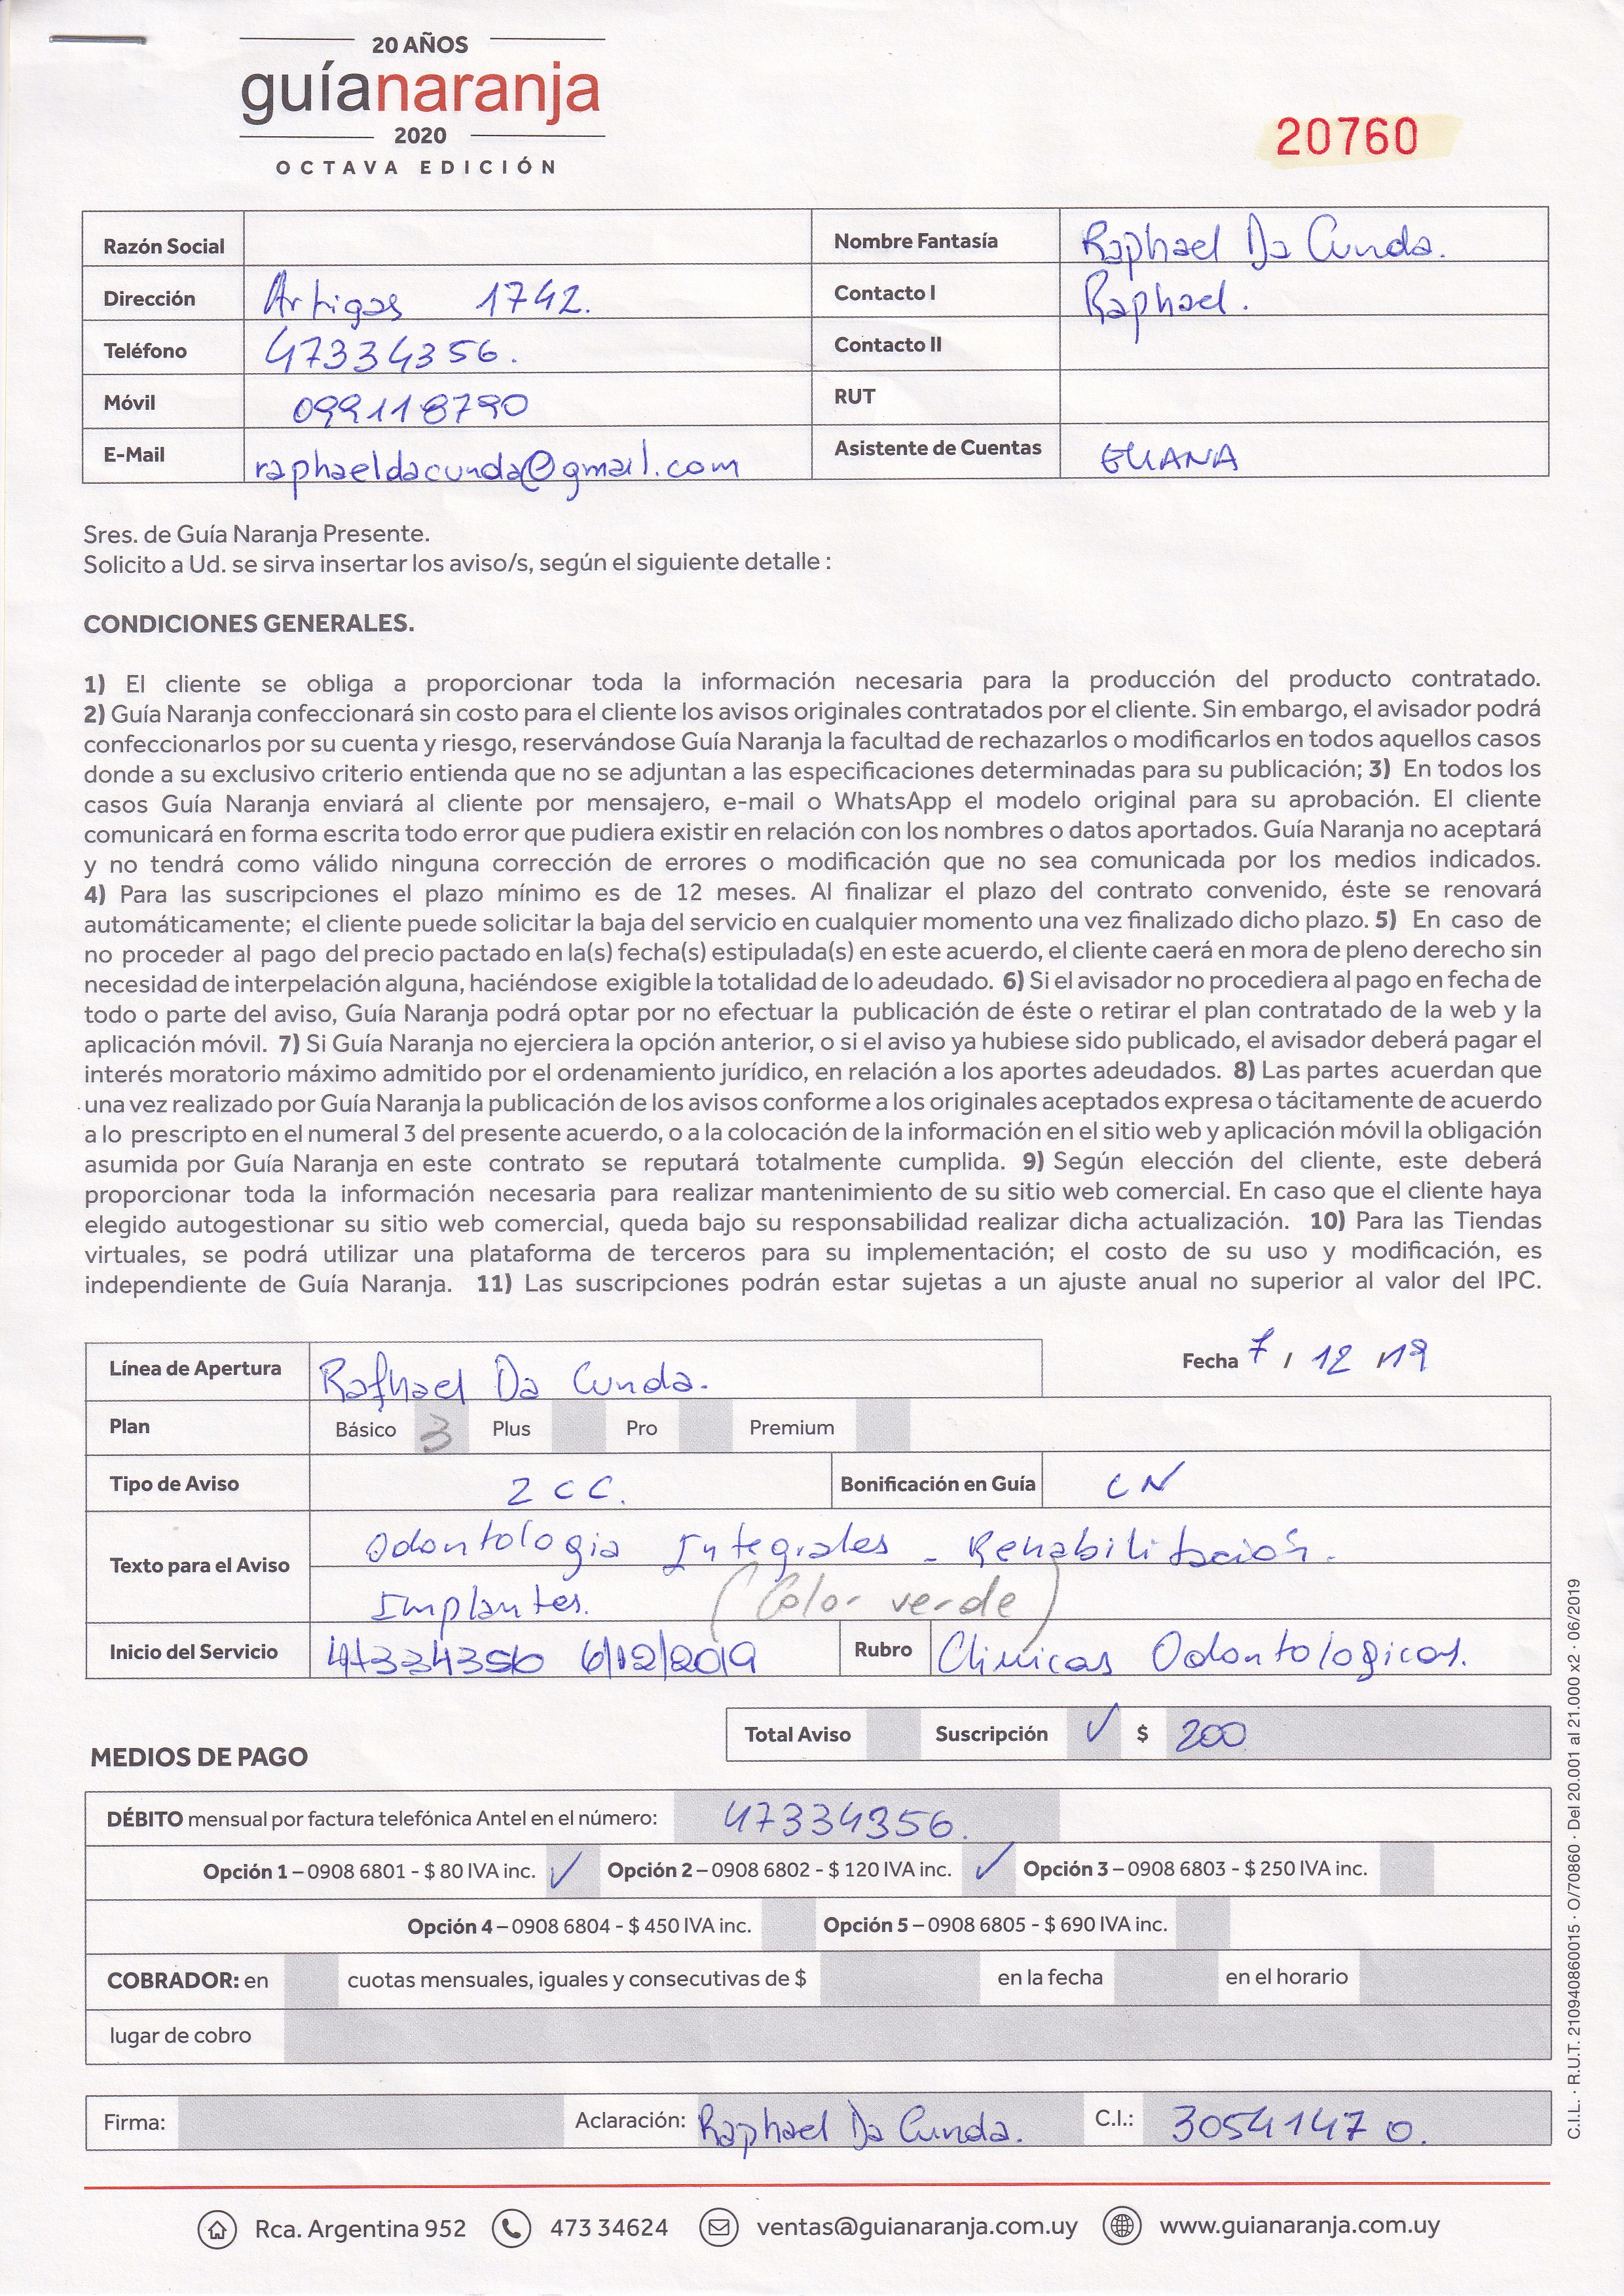 20 AÑOS
guíanaranja
2020
OCTAVA EDICIÓN
20760
Razón Social
Nombre Fantasía Raphael Da Cunda.
Dirección Artigas 1742.
Contacto I Raphael.
Teléfono 47334356.
Contacto II
Móvil 099118790
RUT
E-Mail raphaeldacunda@gmail.com
Asistente de Cuentas ELIANA
Sres. de Guía Naranja Presente.
Solicito a Ud. se sirva insertar los aviso/s, según el siguiente detalle :
CONDICIONES GENERALES.
1) El cliente se obliga a proporcionar toda la información necesaria para la producción del producto contratado.
2) Guía Naranja confeccionará sin costo para el cliente los avisos originales contratados por el cliente. Sin embargo, el avisador podrá
confeccionarlos por su cuenta y riesgo, reservándose Guía Naranja la facultad de rechazarlos o modificarlos en todos aquellos casos
donde a su exclusivo criterio entienda que no se adjuntan a las especificaciones determinadas para su publicación; 3) En todos los
casos Guía Naranja enviará al cliente por mensajero, e-mail o WhatsApp el modelo original para su aprobación. El cliente
comunicará en forma escrita todo error que pudiera existir en relación con los nombres o datos aportados. Guía Naranja no aceptará
y no tendrá como válido ninguna corrección de errores o modificación que no sea comunicada por los medios indicados.
4) Para las suscripciones el plazo mínimo es de 12 meses. Al finalizar el plazo del contrato convenido, éste se renovará
automáticamente; el cliente puede solicitar la baja del servicio en cualquier momento una vez finalizado dicho plazo. 5) En caso de
no proceder al pago del precio pactado en la(s) fecha(s) estipulada(s) en este acuerdo, el cliente caerá en mora de pleno derecho sin
necesidad de interpelación alguna, haciéndose exigible la totalidad de lo adeudado. 6) Si el avisador no procediera al pago en fecha de
todo o parte del aviso, Guía Naranja podrá optar por no efectuar la publicación de éste o retirar el plan contratado de la web y la
aplicación móvil. 7) Si Guía Naranja no ejerciera la opción anterior, o si el aviso ya hubiese sido publicado, el avisador deberá pagar el
interés moratorio máximo admitido por el ordenamiento jurídico, en relación a los aportes adeudados. 8) Las partes acuerdan que
una vez realizado por Guía Naranja la publicación de los avisos conforme a los originales aceptados expresa o tácitamente de acuerdo
a lo prescripto en el numeral 3 del presente acuerdo, o a la colocación de la información en el sitio web y aplicación móvil la obligación
asumida por Guía Naranja en este contrato se reputará totalmente cumplida. 9) Según elección del cliente, este deberá
proporcionar toda la información necesaria para realizar mantenimiento de su sitio web comercial. En caso que el cliente haya
elegido autogestionar su sitio web comercial, queda bajo su responsabilidad realizar dicha actualización. 10) Para las Tiendas
virtuales, se podrá utilizar una plataforma de terceros para su implementación; el costo de su uso y modificación, es
independiente de Guía Naranja. 11) Las suscripciones podrán estar sujetas a un ajuste anual no superior al valor del IPC.
Línea de Apertura Rafhael Da Cunda.
Fecha 7 / 12 /19
Plan Básico 3 Plus Pro Premium
Tipo de Aviso 2 CC. Bonificación en Guía CN
Texto para el Aviso Odontologia Integrales - Rehabilitación.
Implantes. (Color verde)
Inicio del Servicio 47334356 6/12/2019 Rubro Clinicas Odontologicas.
Total Aviso Suscripción ✓ $ 200
MEDIOS DE PAGO
DÉBITO mensual por factura telefónica Antel en el número: 47334356.
Opción 1 – 0908 6801 - $ 80 IVA inc. ✓ Opción 2 – 0908 6802 - $ 120 IVA inc. ✓ Opción 3 – 0908 6803 - $ 250 IVA inc.
Opción 4 – 0908 6804 - $ 450 IVA inc. Opción 5 – 0908 6805 - $ 690 IVA inc.
COBRADOR: en cuotas mensuales, iguales y consecutivas de $ en la fecha en el horario
lugar de cobro
Firma: Aclaración: Raphael Da Cunda. C.I.: 3054147 0.
Rca. Argentina 952 473 34624 ventas@guianaranja.com.uy www.guianaranja.com.uy
C.I.L. · R.U.T. 210940860015 · O/70860 · Del 20.001 al 21.000 x2 · 06/2019